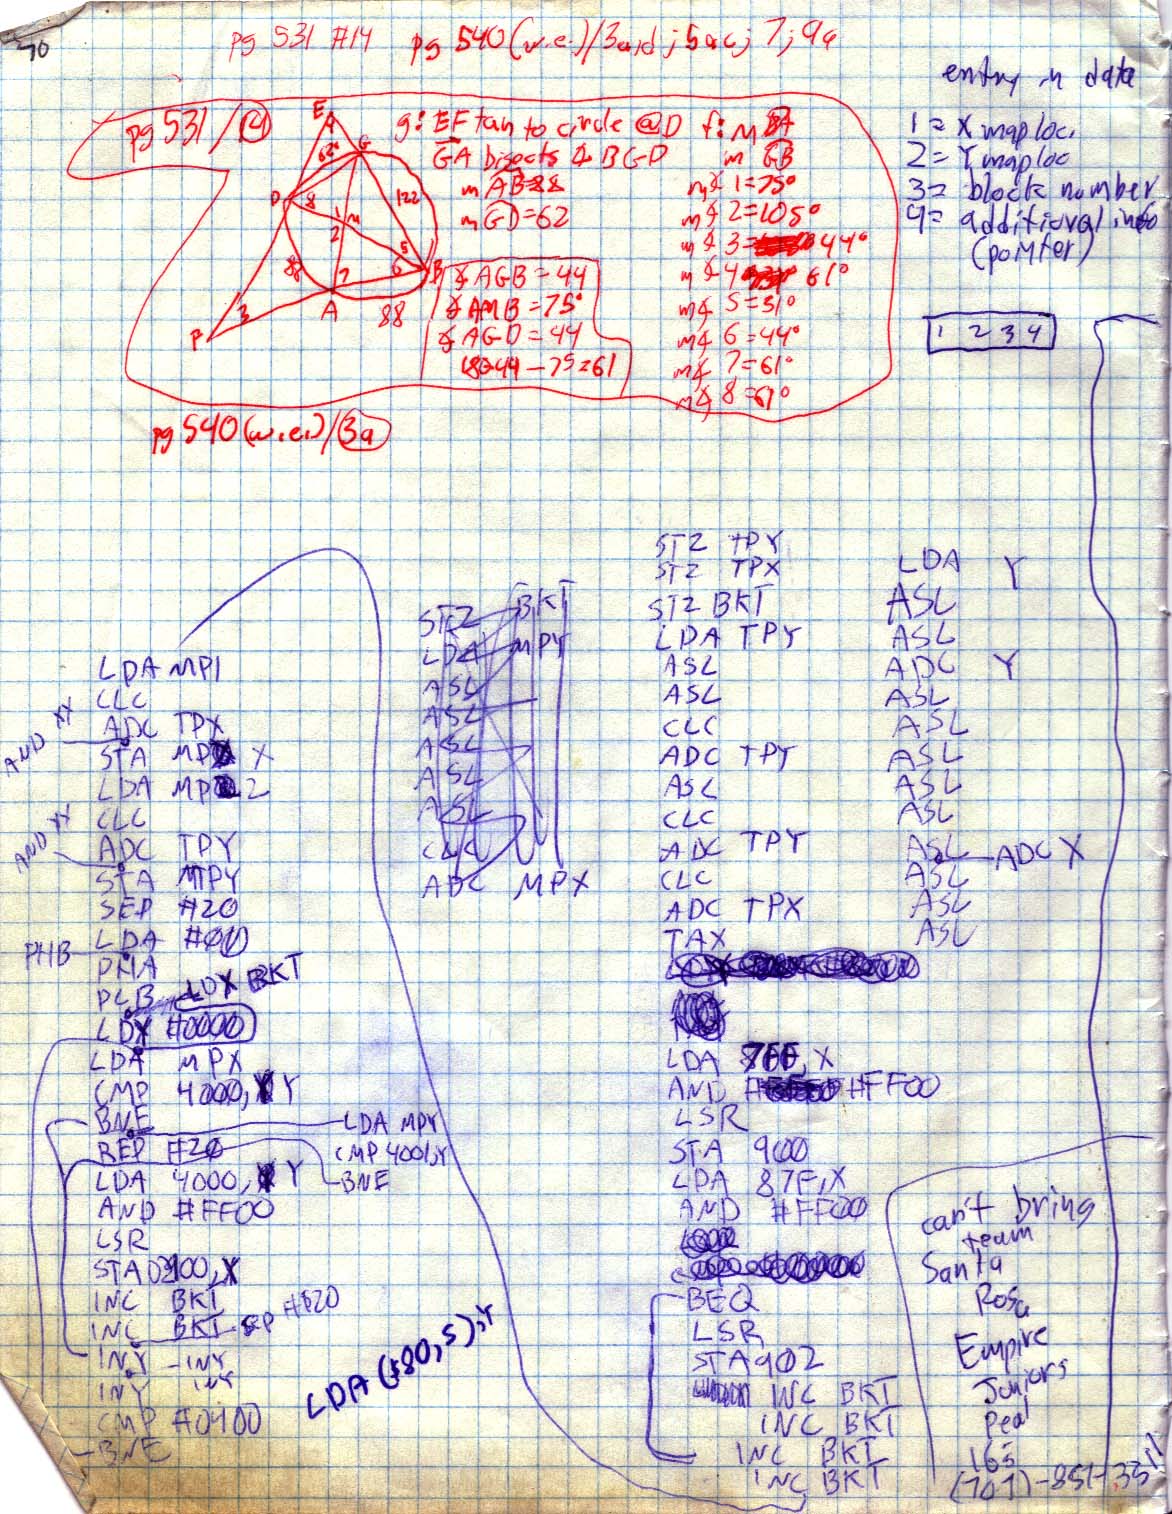 pg 531 #14 pg 540 (w.e.)/3a,d; 5ac; 7; 9a
entry in data
1 = X map loc.
2 = Y map loc
3 = block number
4 = additional info
(pointer)
1 2 3 4
pg 531/14
g: EF tan to circle @D f: m BA
GA bisects ∡ BGD m GB
m AB=88 m∡ 1=75°
m GD=62 m∡ 2=105°
m∡ 3= 44°
∡AGB = 44 m∡ 4 61°
∡AMB = 75° m∡ 5=31°
∡AGD = 44 m∡ 6=44°
180-44-75=61 m∡ 7=61°
m∡ 8=61°
E
G
D 8 1 M 122
2 5
88 7 6 B
3 A 88
F
pg 540 (w.e.)/3a
LDA MP1
CLC
ADC TPX
AND XX
STA MP X
LDA MP 2
CLC
ADC TPY
AND XX
STA MPY
SEP #20
LDA #00
PHB
PHA
PLB LDX BKT
LDY #0000
LDA MPX
CMP 4000, Y
BNE LDA MPY
CMP 4001,Y
BNE
REP #20
LDA 4000, Y
AND #FF00
LSR
STA 0900,X
INC BKT
INC BKT SEP #20
INY INY
INY INY
CMP #0400
BNE
LDA ($80,S),Y
STZ BKT
LDA MPY
ASL
ASL
ASL
ASL
ASL
CLC
ADC MPX
STZ TPY
STZ TPX
STZ BKT
LDA TPY
ASL
ASL
CLC
ADC TPY
ASL
CLC
ADC TPY
CLC
ADC TPX
TAX
LDA 7FF,X
AND #FF00
LSR
STA 900
LDA 87F,X
AND #FF00
BEQ
LSR
STA 902
INC BKT
INC BKT
INC BKT
INC BKT
LDA Y
ASL
ASL
ADC Y
ASL
ASL
ASL
ASL
ASL
ASL ADC X
ASL
ASL
ASL
can't bring
team
Santa
Rosa
Empire
Juniors
Peal
165